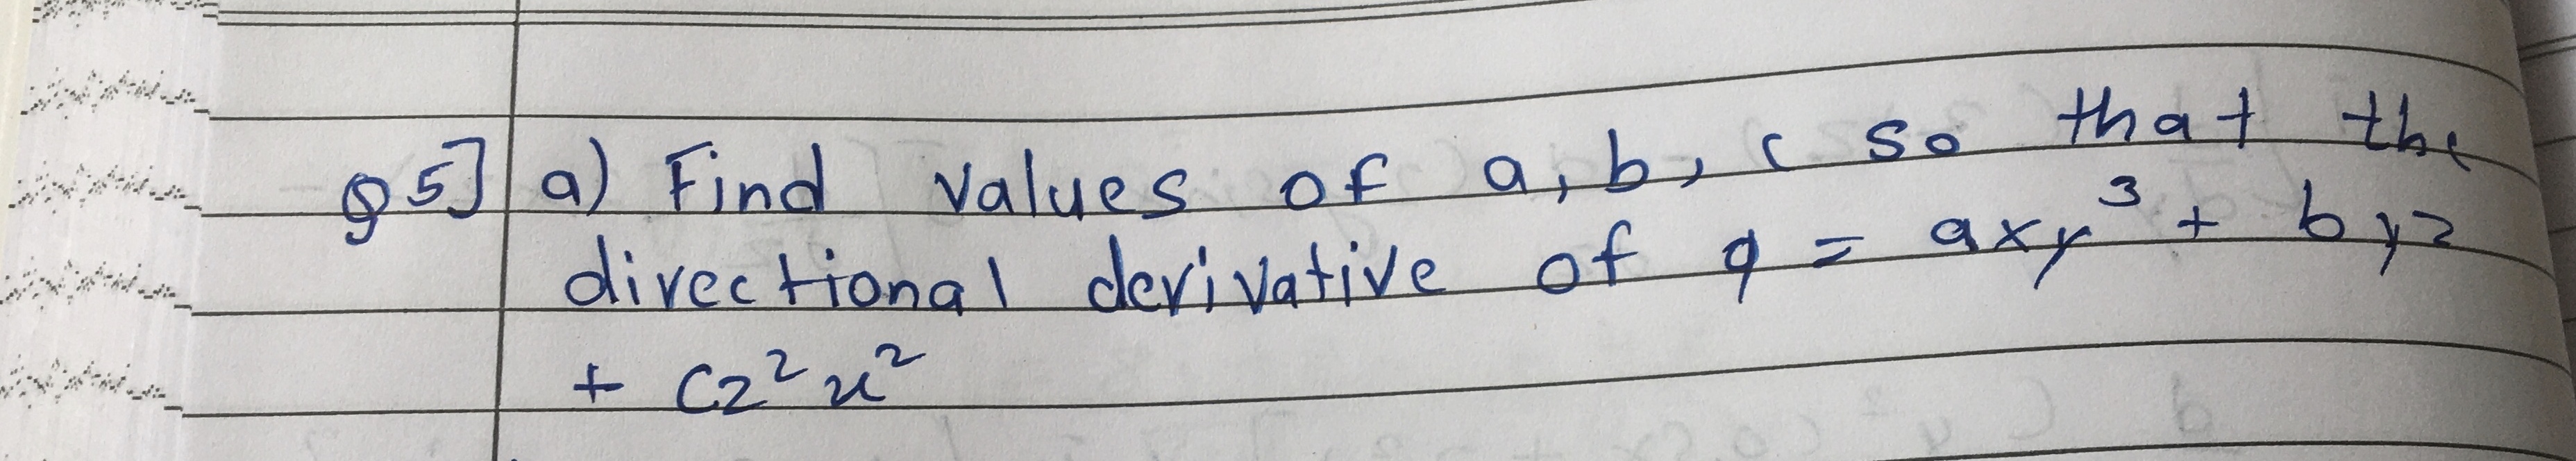 Q5] a) Find values of a, b, c so that the
directional derivative of φ = axy³ + byz
+ cz²x²